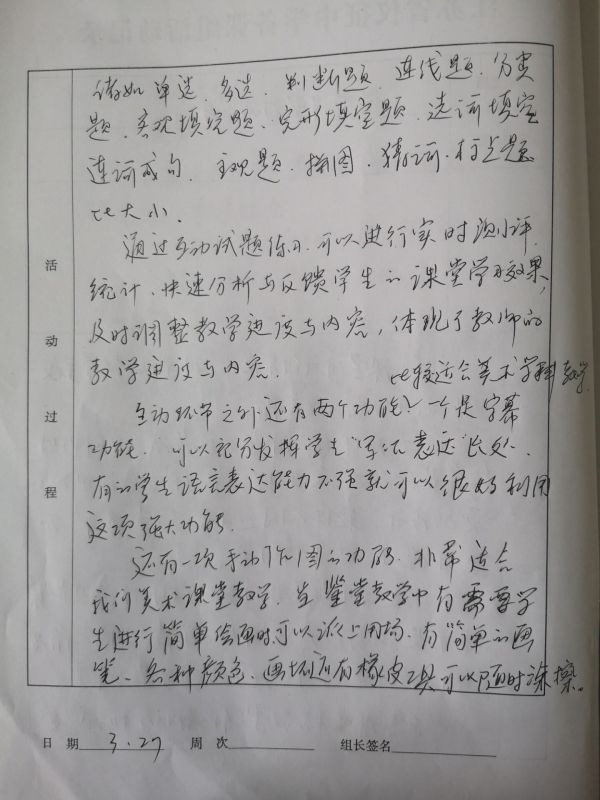 诸如单选、多选、判断题、连线题、分类
题、客观填空题、完形填空题、选词填空
连词成句、主观题、拼图、猜词、打点题
比大小.
通过互动试题练习,可以进行实时测评
统计、快速分析与反馈学生的课堂学习效果,
及时调整教学建设与内容,体现了教师的
教学建设与内容.
比较适合美术学科教学.
互动环节之外还有两个功能:一个是字幕
功能.可以充分发挥学生“ 表达”长处.
有的学生语言表达能力不强就可以很好利用
这项强大功能.
还有一项手动 图的功能.非常适合
我们美术课堂教学.当鉴赏教学中有需要学
生进行简单绘画时可以派上用场.有简单的画
笔、各种颜色、画坏还有橡皮工具可以随时涂擦。
活动过程
日 期 3.27 周 次 组长签名